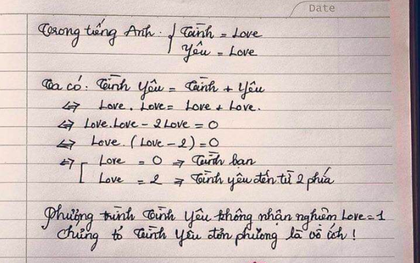 Date
Trong tiếng Anh: { Tình = Love
Yêu = Love
Ta có: Tình Yêu = Tình + Yêu
⇔ Love . Love = Love + Love.
⇔ Love.Love - 2Love = 0
⇔ Love . (Love - 2) = 0
⇔ [ Love = 0 ⇒ Tình bạn
Love = 2 ⇒ Tình yêu đến từ 2 phía
Phương trình Tình Yêu không nhận nghiệm Love = 1
chứng tỏ Tình Yêu đơn phương là vô ích !